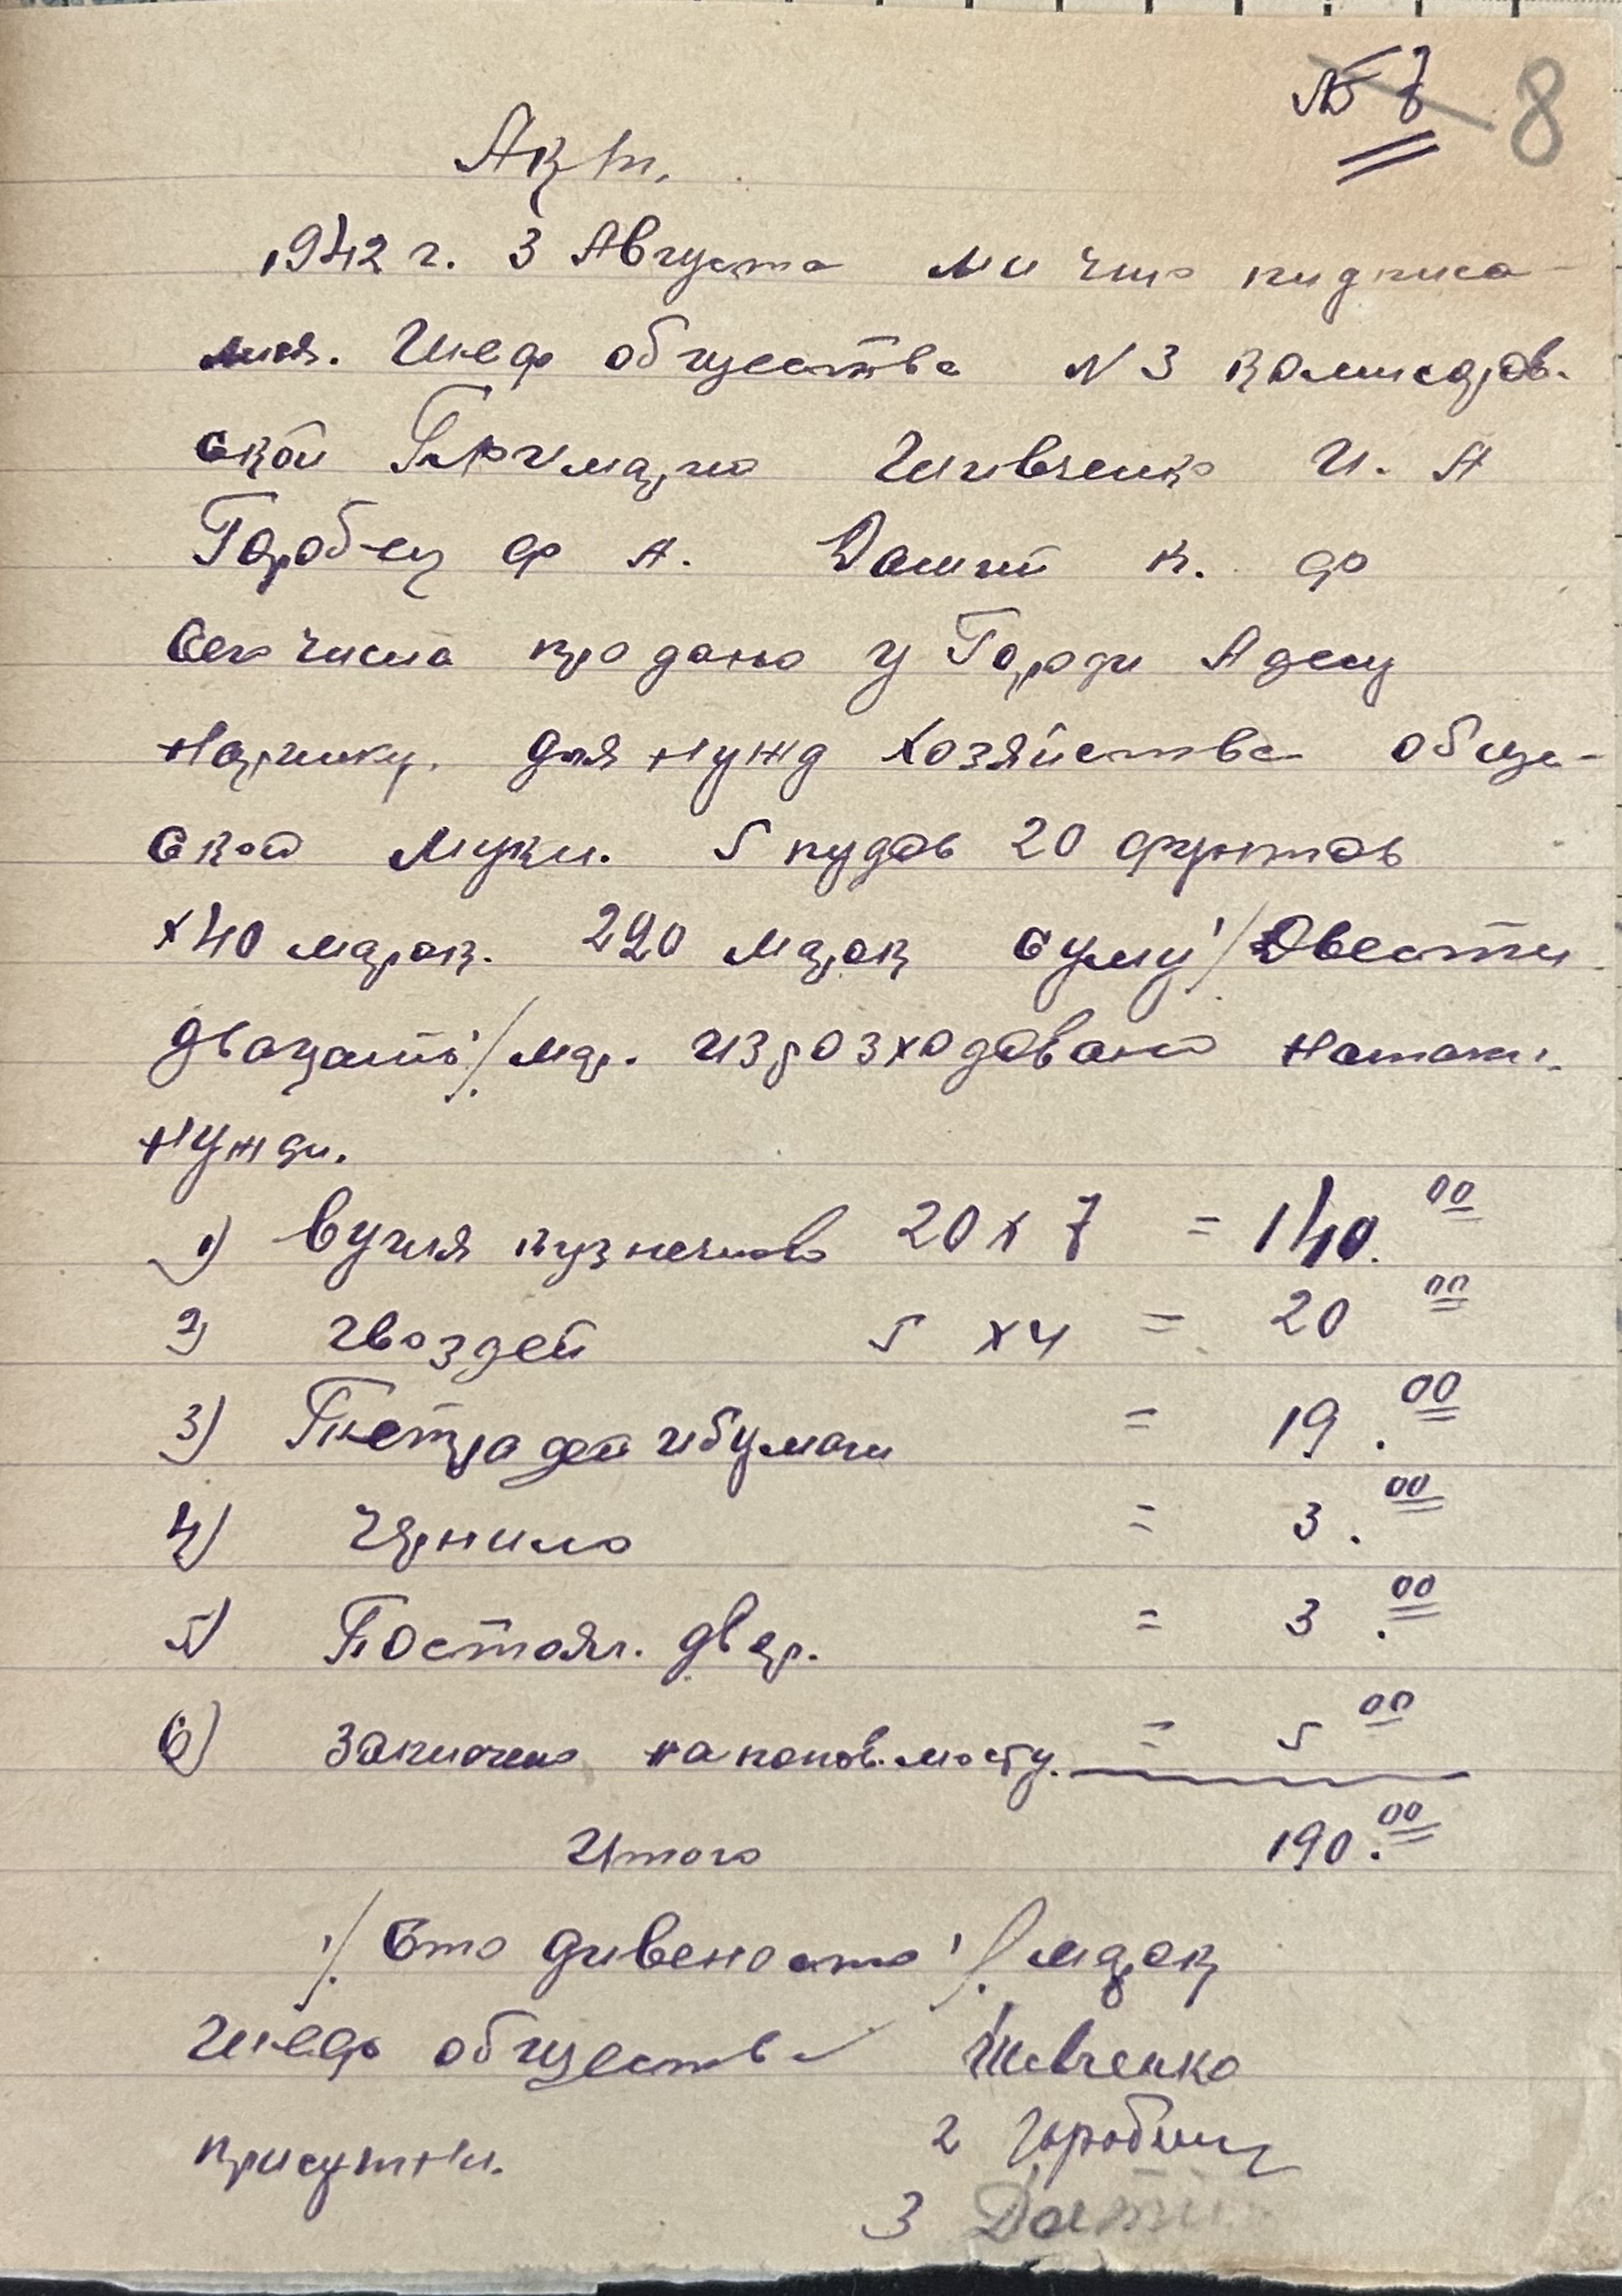 № 7 8
Акт.
1942 г. 3 Августа ми что пидписа-
лися. Шеф общества N 3 комисаров.
ской Примарио Шивченко И. А
Горобец Ф А. Дамит К. Ф
Сего числа продано у Городи Адесу
на ринку. для нужд хозяйства обще-
ской Муки. 5 пудов 20 фунтов
х 40 марок. 220 марок суму /Двести
двацать/ мар. изрозходовано на таки.
нужди.
1) вугля кузнечново 20 х 7 = 140.00
2) гвоздей 5 х 4 = 20 00
3) Тетрадей и бумаги = 19.00
4) Чернило = 3.00
5) Постоял. двор. = 3.00
6) Заплочено на понов. мосту. = 5 00
Итого 190.00
/ Сто дивеносто / марок
Шеф общества Шевченко
присутни. 2 Горобец
3